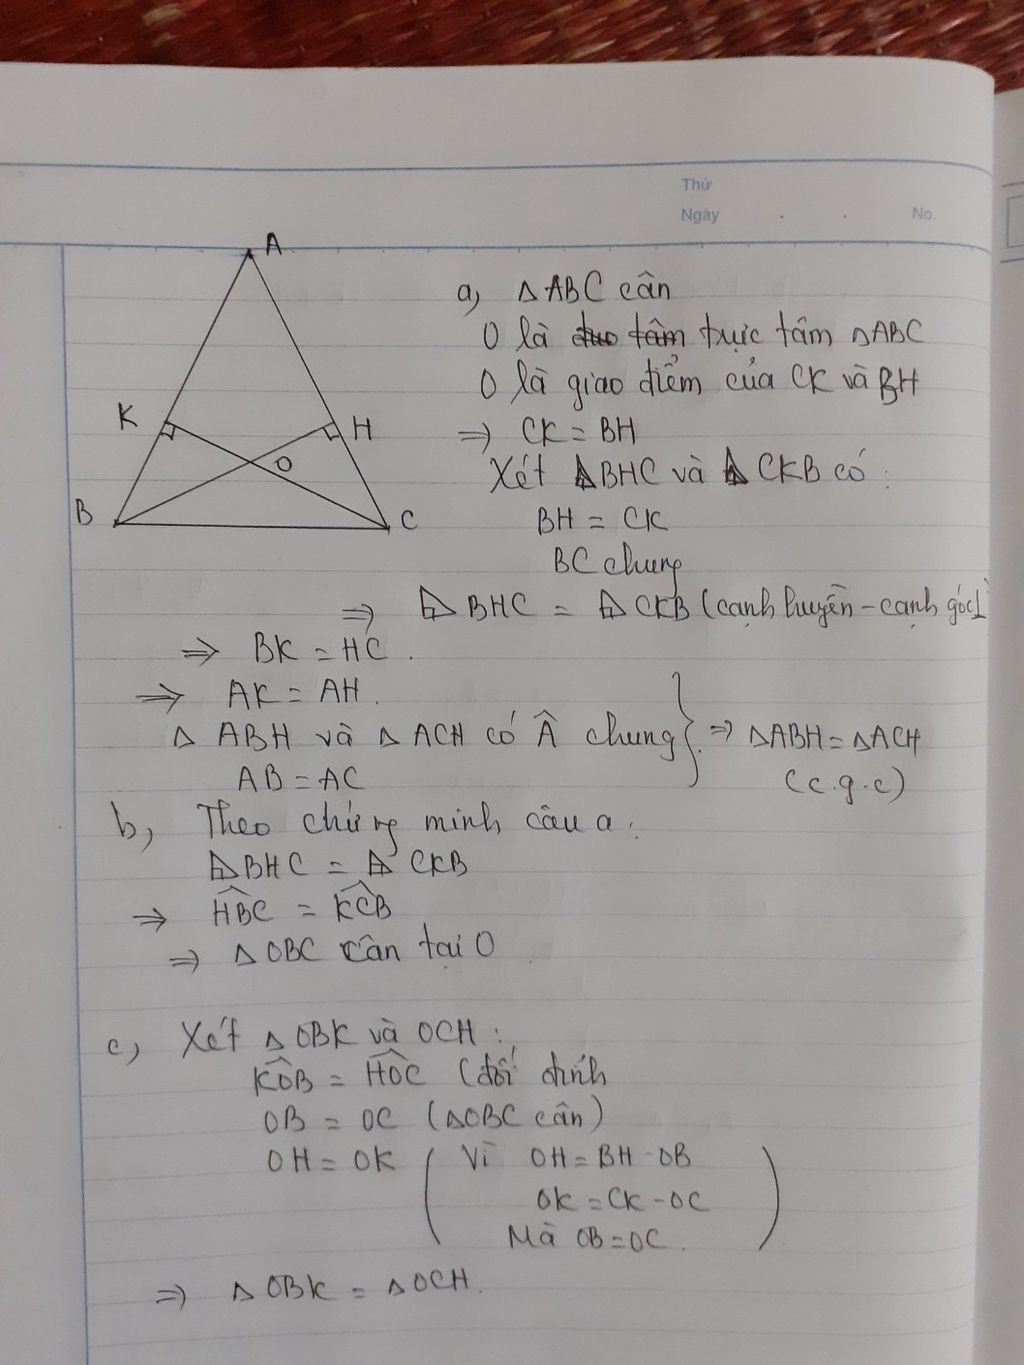 Thứ
Ngày . . No.
A
K
H
O
B
C
a, Δ ABC cân
O là trực tâm ΔABC
O là giao điểm của CK và BH
⇒ CK = BH
Xét ΔBHC và Δ CKB có :
BH = CK
BC chung
⇒ Δ BHC = Δ CKB (cạnh huyền - cạnh góc⊥
⇒ BK = HC .
⇒ AK = AH .
Δ ABH và Δ ACH có Â chung } ⇒ ΔABH = ΔACH
AB = AC (c.g.c)
b, Theo chứng minh câu a :
Δ BHC = Δ CKB
⇒ HBC = KCB
⇒ Δ OBC cân tại O
c, Xét Δ OBK và OCH :
KOB = HOC (đối đỉnh
OB = OC (ΔOBC cân)
OH = OK ( Vì OH = BH - OB
OK = CK - OC
Mà OB = OC . )
⇒ Δ OBK = Δ OCH .